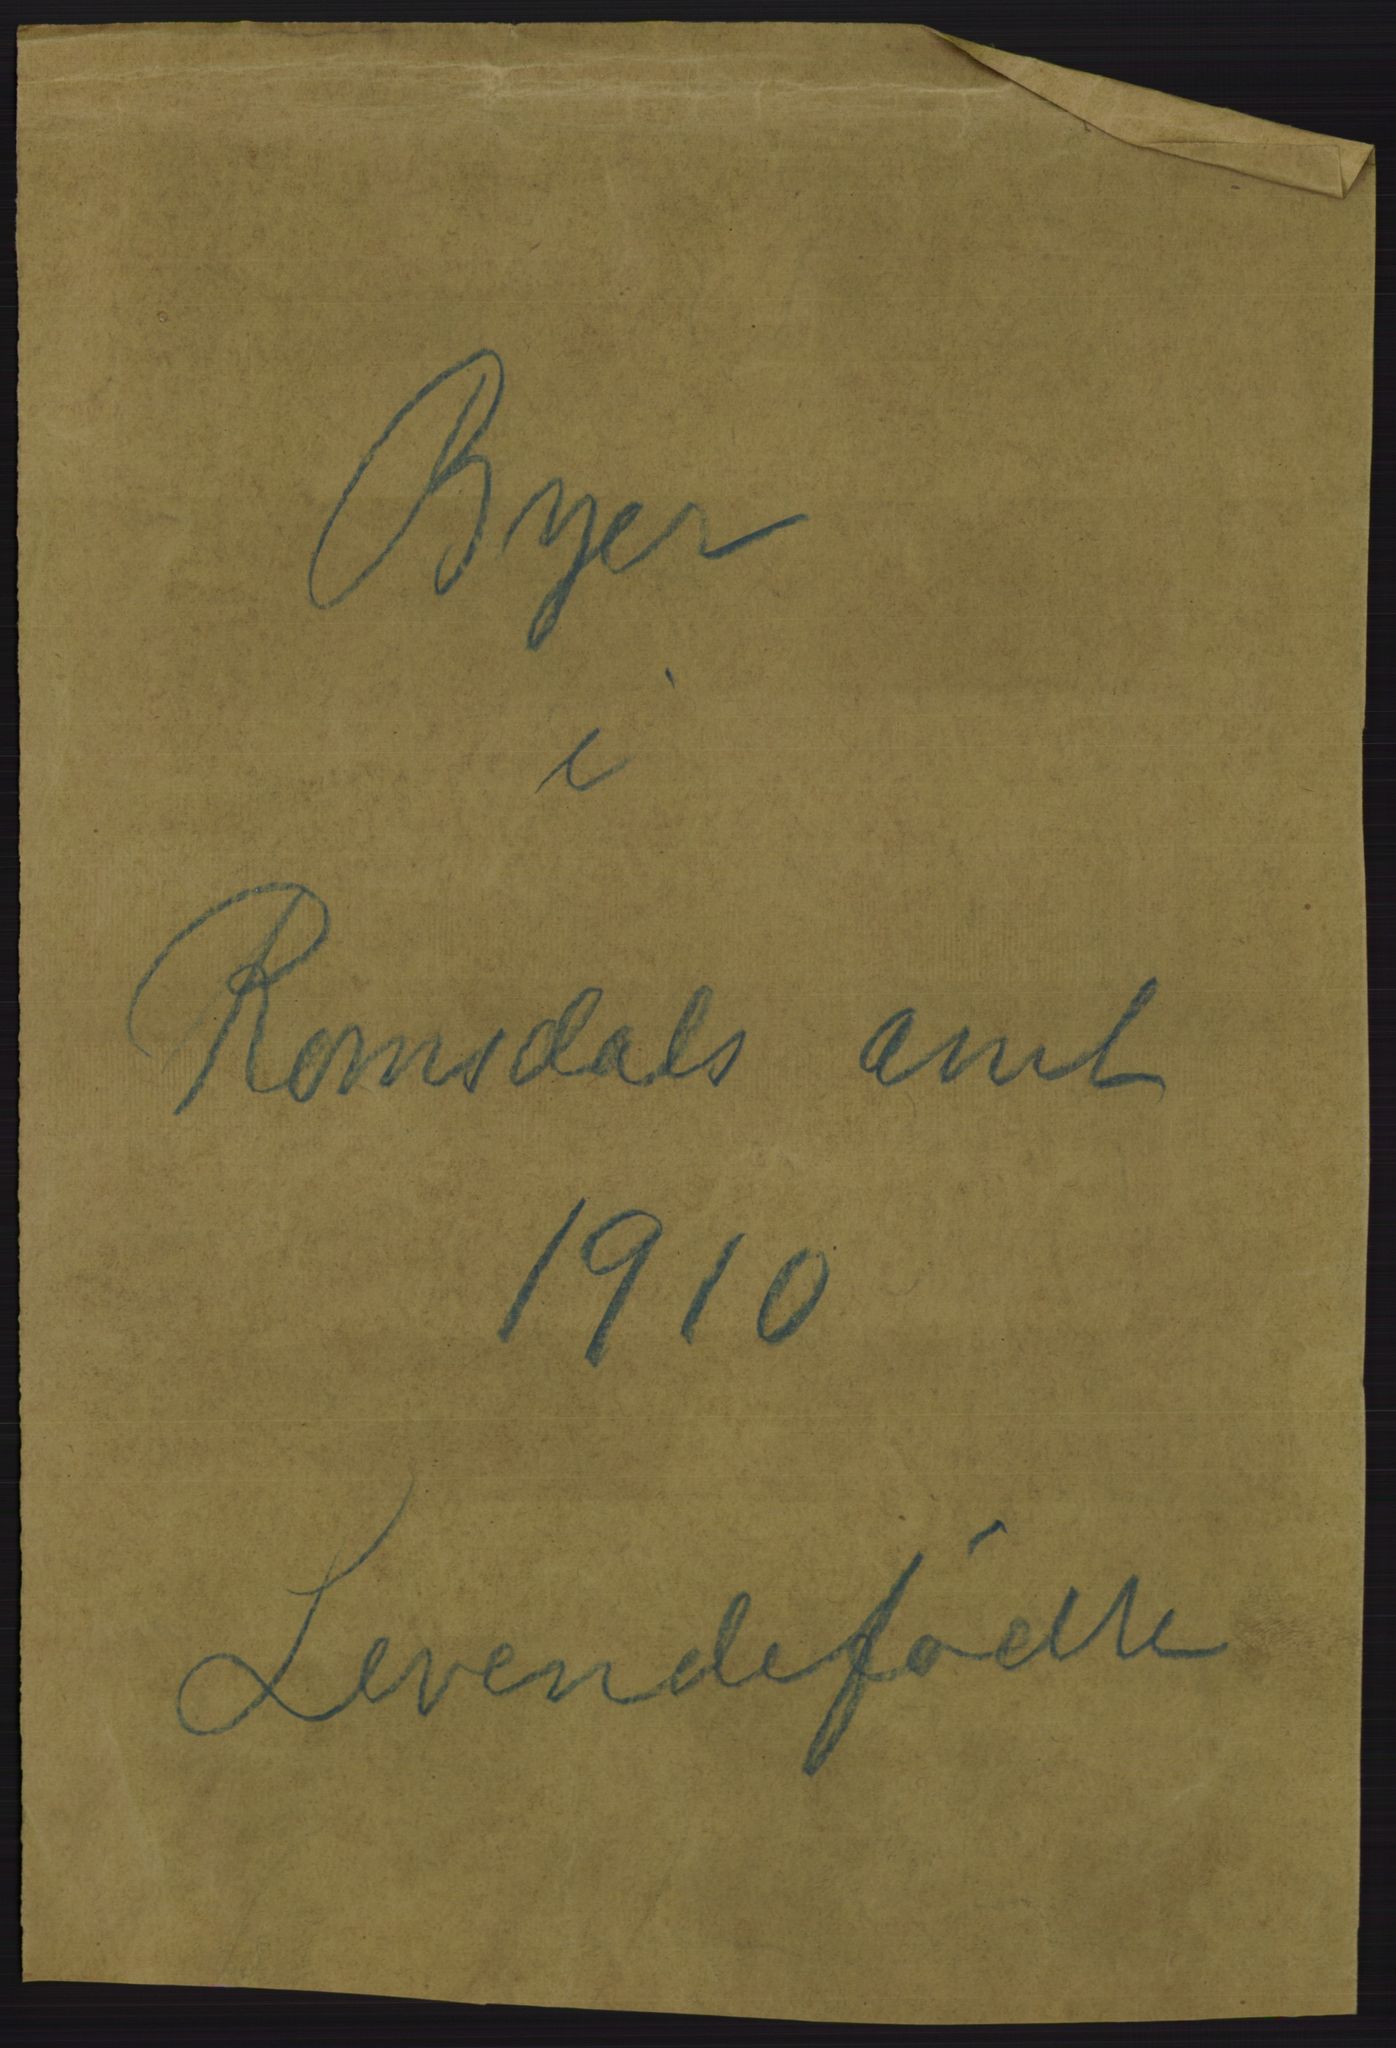 Byer
i
Romsdals amt
1910
Levendefødte